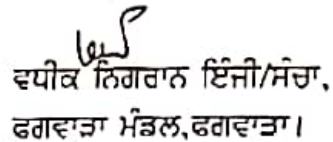 ਵਧੀਕ ਨਿਗਰਾਨ ਇੰਜੀ/ਸੰਚਾ,
ਫਗਵਾੜਾ ਮੰਡਲ,ਫਗਵਾੜਾ।